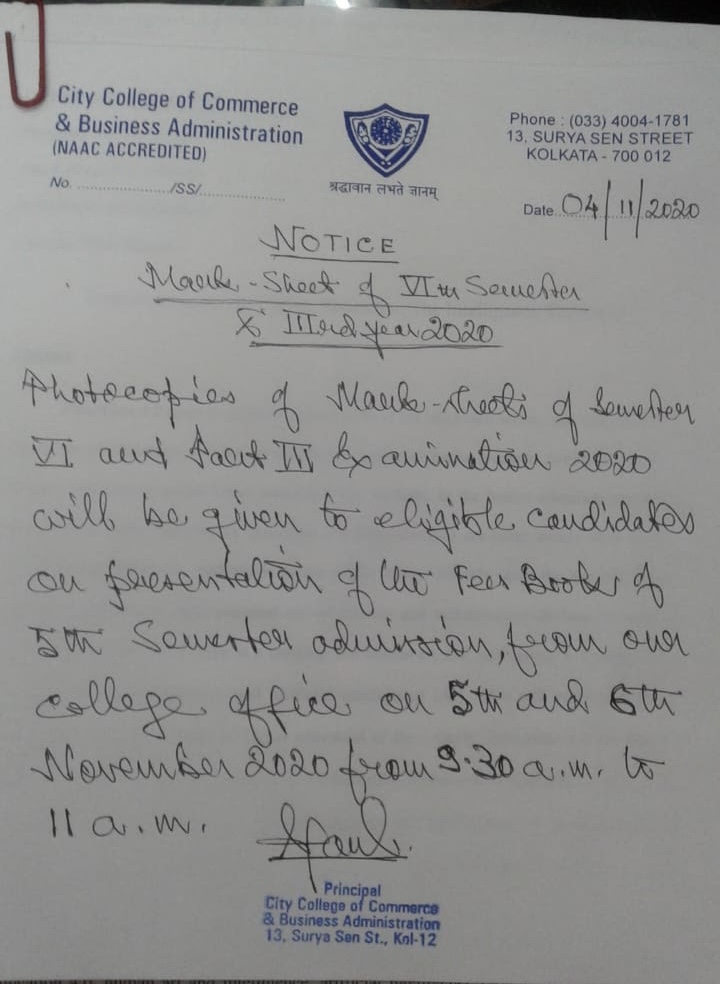 City College of Commerce
& Business Administration
(NAAC ACCREDITED)
No. ......................./SS/......................
श्रद्धावान लभते ज्ञानम्
Phone : (033) 4004-1781
13, SURYA SEN STREET
KOLKATA - 700 012
Date 04/11/2020
NOTICE
Mark-Sheet of VIth Semester
& IIIrd year 2020
Photocopies of Mark-sheets of Semester
VI and Part III Examination 2020
will be given to eligible candidates
on presentation of the Fees Book of
5th Semester admission, from our
college office on 5th and 6th
November 2020 from 9.30 a.m. to
11 a.m.
Principal
City College of Commerce
& Business Administration
13, Surya Sen St., Kol-12